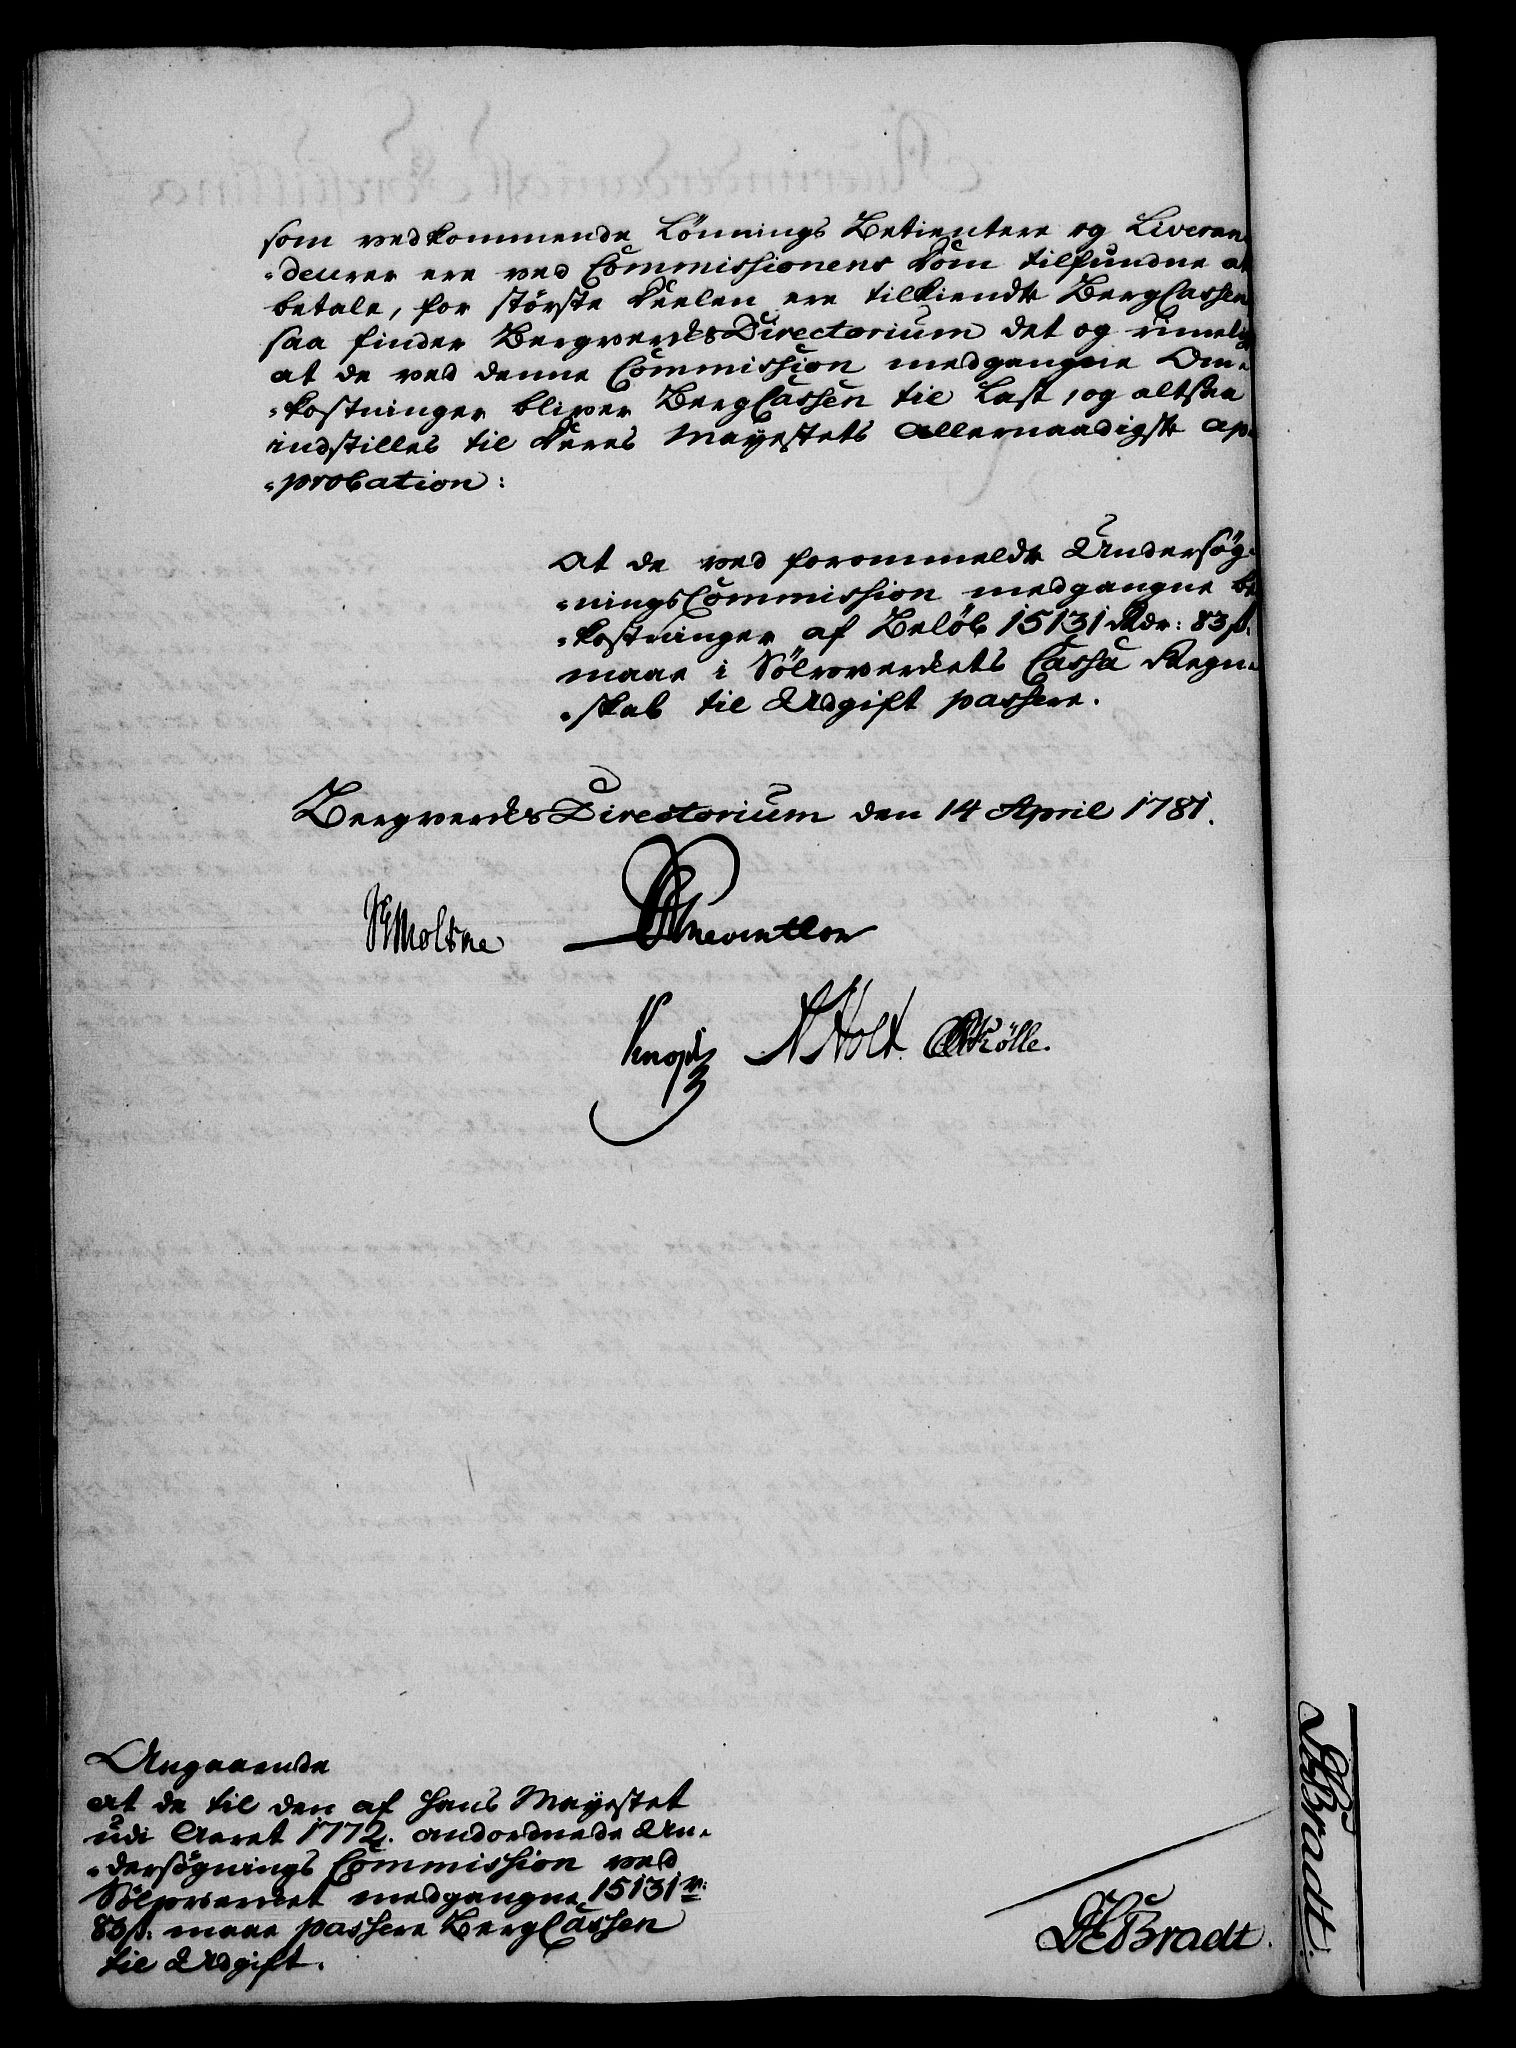 som vedkommende Lönnings Betientere og Liveran-
-deurer ere ved Commissionens Dom tilfundne at
betale, for störste Deelen ere tilkiendte BergCassen,
saa finder BergverksDirectorium det og rimeligt
at de ved denne Commission medgangne Om-
-kostninger bliver BergCassen til Last, og altsaa
indstilles til Deres Mayestets allernaadigste ap-
-probation:
At de ved forommeldte Undersög-
-ningsCommission medgangne be-
-kostninger af Belöb 15131 Rdr: 83 ß:
maae i Sölvverkets Cassa Regn-
-skab til Udgift passere.
BergverksDirectorium den 14 April 1781.
Moltke Reventlow
Knoph Holt Rölle.
Angaaende
at de til den af Hans Mayestet
udi Aaret 1772. anordnede Un-
-dersögnings Commission ved
Sölvverket medgangne 15131 r:
83 ß: maae passere BergCassen
til Udgift.
Bradt.
Bradt.